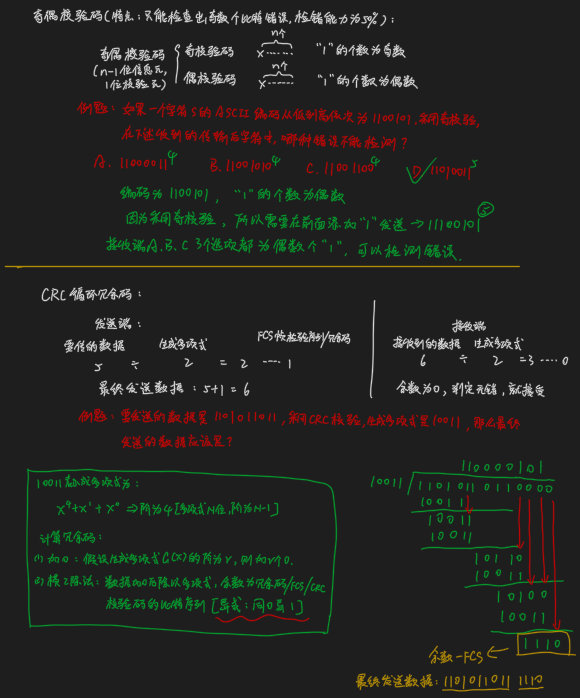 奇偶校验码(特点：只能检查出奇数个比特错误,检错能力为50%)：
奇偶校验码
(n-1位信息元,
1位校验元)
奇校验码
n个
x……
"1"的个数为奇数
偶校验码
n个
x……
"1"的个数为偶数
例题：如果一个字符S的ASCII编码从低到高依次为1100101,采用奇校验,
在下述收到的传输后字符中,哪种错误不能检测？
A. 11000011 4
B. 11001010 4
C. 11001100 4
D. 11010011 5
编码为1100101，"1"的个数为偶数
因为采用奇校验，所以需要在前面添加"1"发送→11100101 5
接收端A.B.C 3个选项都为偶数个"1"，可以检测错误.
CRC循环冗余码：
发送端：
要传的数据 生成多项式 FCS帧检验序列/冗余码
5 ÷ 2 = 2 …… 1
最终发送数据：5+1=6
接收端
接收到的数据 生成多项式
6 ÷ 2 =3 …… 0
余数为0，判定无错，就接受
例题：要发送的数据是1101011011,采用CRC校验,生成多项式是10011,那么最终
发送的数据应该是？
10011表示成多项式为：
X⁴+X¹+X⁰ ⇒阶为4[多项式N位,阶为N-1]
计算冗余码：
(1)加0：假设生成多项式G(X)的阶为r，则加r个0.
(2)模2除法：数据加0后除以多项式，余数为冗余码/FCS/CRC
校验码的比特序列[异或：同0异1]
110000101
10011
11010110110000
10011
10011
10011
10110
10011
10100
10011
1110
余数-FCS
最终发送数据：1101011011 1110